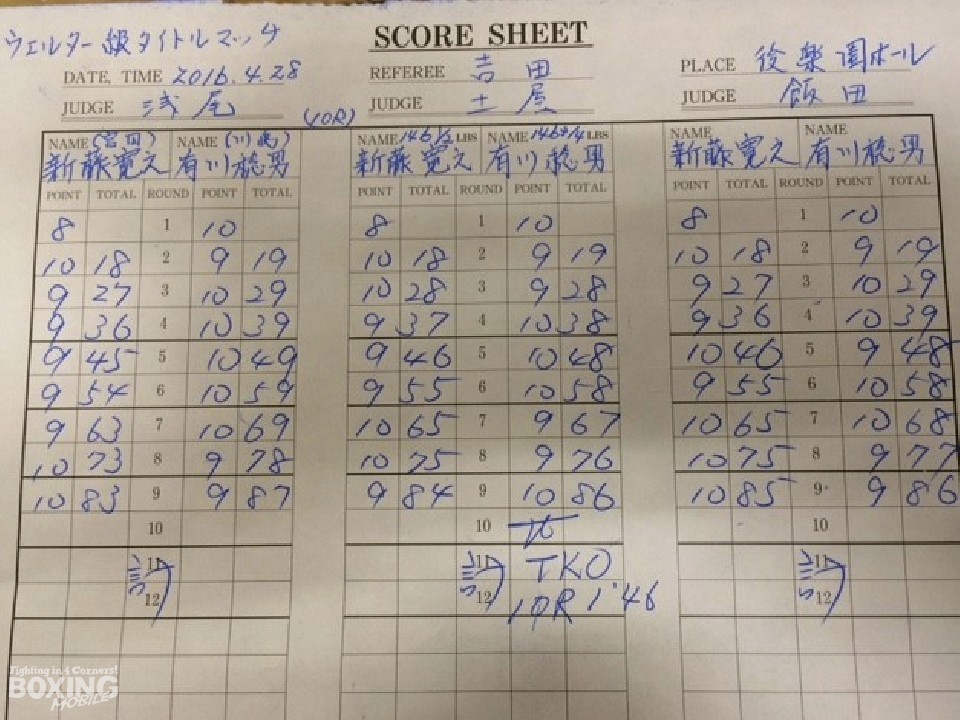 ウェルター級タイトルマッチ
SCORE SHEET
DATE, TIME 2016.4.28 REFEREE 吉田 PLACE 後楽園ホール
JUDGE 浅尾 (10R) JUDGE 土屋 JUDGE 飯田
NAME (宮田) NAME (川島) NAME 146 1/2 LBS NAME 146 3/4 LBS NAME NAME
新藤寛之 有川稔男 新藤寛之 有川稔男 新藤寛之 有川稔男
POINT TOTAL ROUND POINT TOTAL POINT TOTAL ROUND POINT TOTAL POINT TOTAL ROUND POINT TOTAL
8 1 10 8 1 10 8 1 10
10 18 2 9 19 10 18 2 9 19 10 18 2 9 19
9 27 3 10 29 10 28 3 9 28 9 27 3 10 29
9 36 4 10 39 9 37 4 10 38 9 36 4 10 39
9 45 5 10 49 9 46 5 10 48 10 46 5 9 48
9 54 6 10 59 9 55 6 10 58 9 55 6 10 58
9 63 7 10 69 10 65 7 9 67 10 65 7 10 68
10 73 8 9 78 10 75 8 9 76 10 75 8 9 77
10 83 9 9 87 9 84 9 10 86 10 85 9 9 86
10 10 10
11 11 TKO 11
12 12 10R 1'46 12
Fighting in 4 Corners!
BOXING
MOBILE